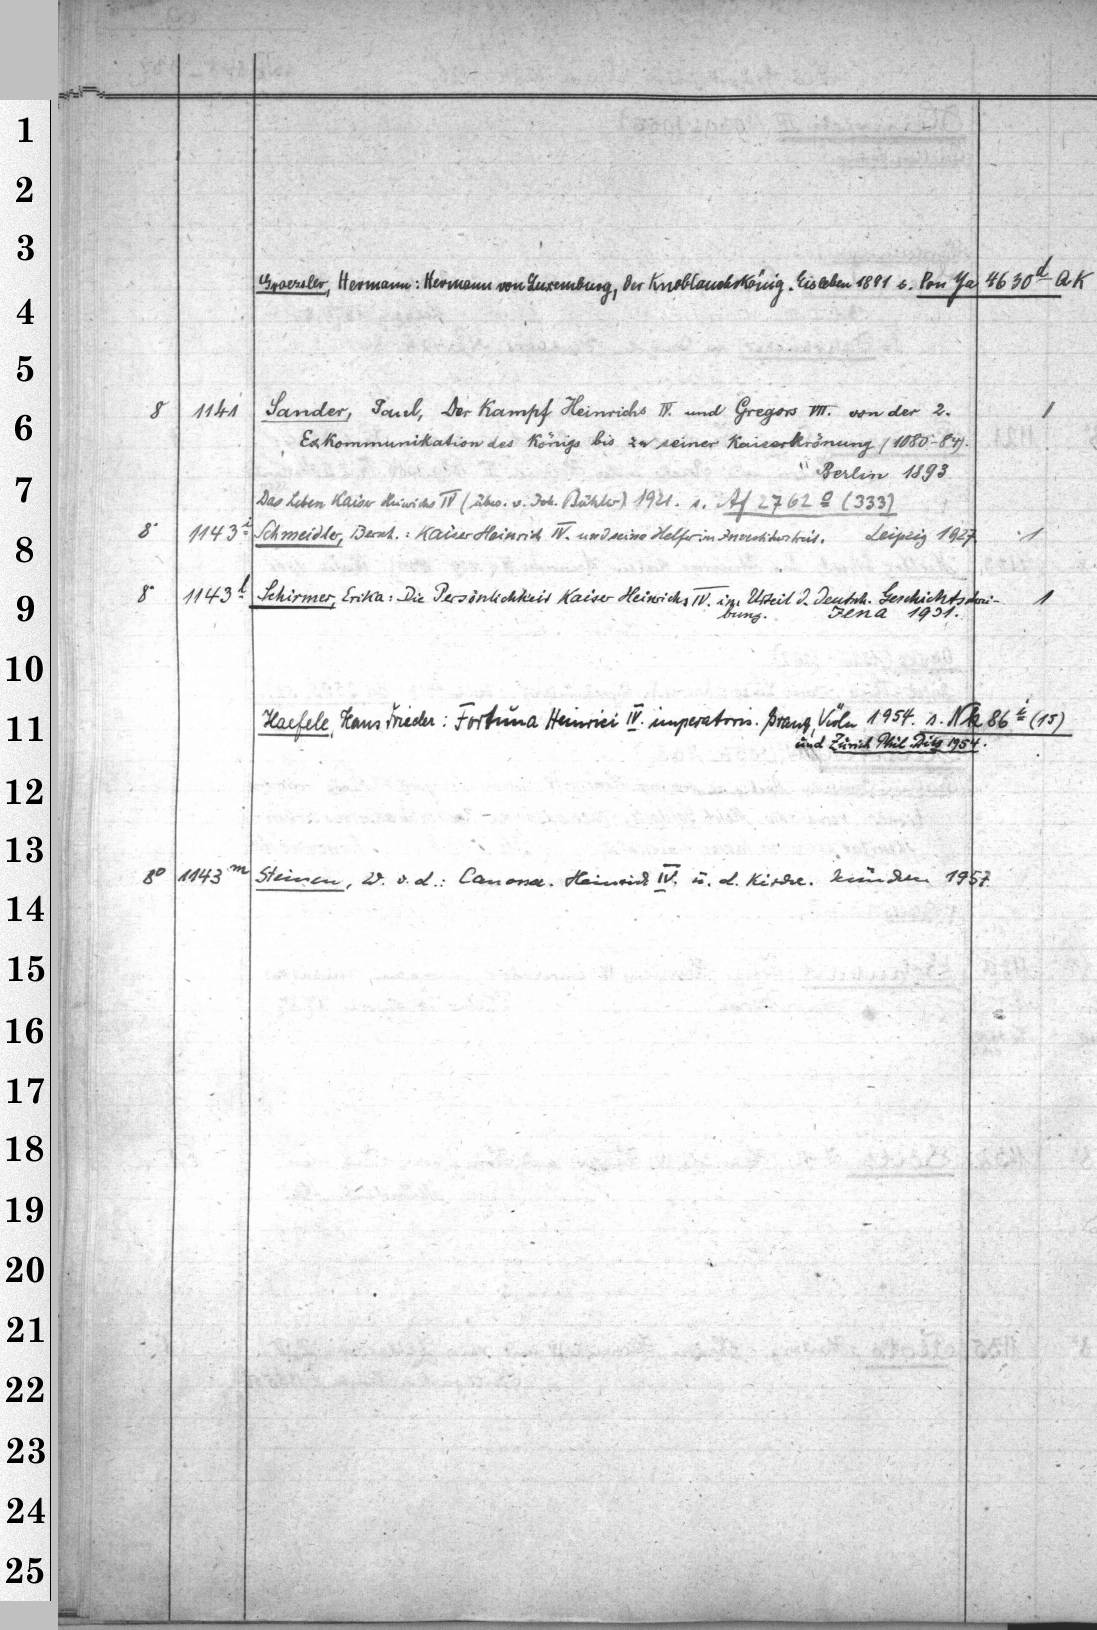 1
2
3
Groessler, Hermann: Hermann von Luxemburg, der Knoblauchskönig. Eisleben 1891 s. Pon Ya 4630 d QK
4
5
8 1141 Sander, Paul, Der Kampf Heinrichs IV. und Gregors VII. von der 2. 1
6
Exkommunikation des Königs bis zu seiner Kaiserkrönung (1080-84).
Berlin 1893
7
Das Leben Kaiser Heinrichs IV (übers. v. Joh. Bühler) 1921. s. Af 2762 o (333)
8° 1143 i Schmeidler, Bernh.: Kaiser Heinrich IV. und seine Helfer im Investiturstreit. Leipzig 1927 1
8
8° 1143 l Schirmer, Erika: Die Persönlichkeit Kaiser Heinrichs IV. im Urteil d. Deutsch. Geschichtschrei- 1
9
bung. Jena 1931.
10
Haefele, Hans Frieder: Fortuna Heinrici IV. imperatoris. Graz, Köln 1954. s. Nk 86 i (15)
11
und Zürich Phil. Diss 1954.
12
13
8° 1143 m Steinen, W. v. d.: Canossa. Heinrich IV. u. d. Kirche. München 1957
14
15
16
17
18
19
20
21
22
23
24
25